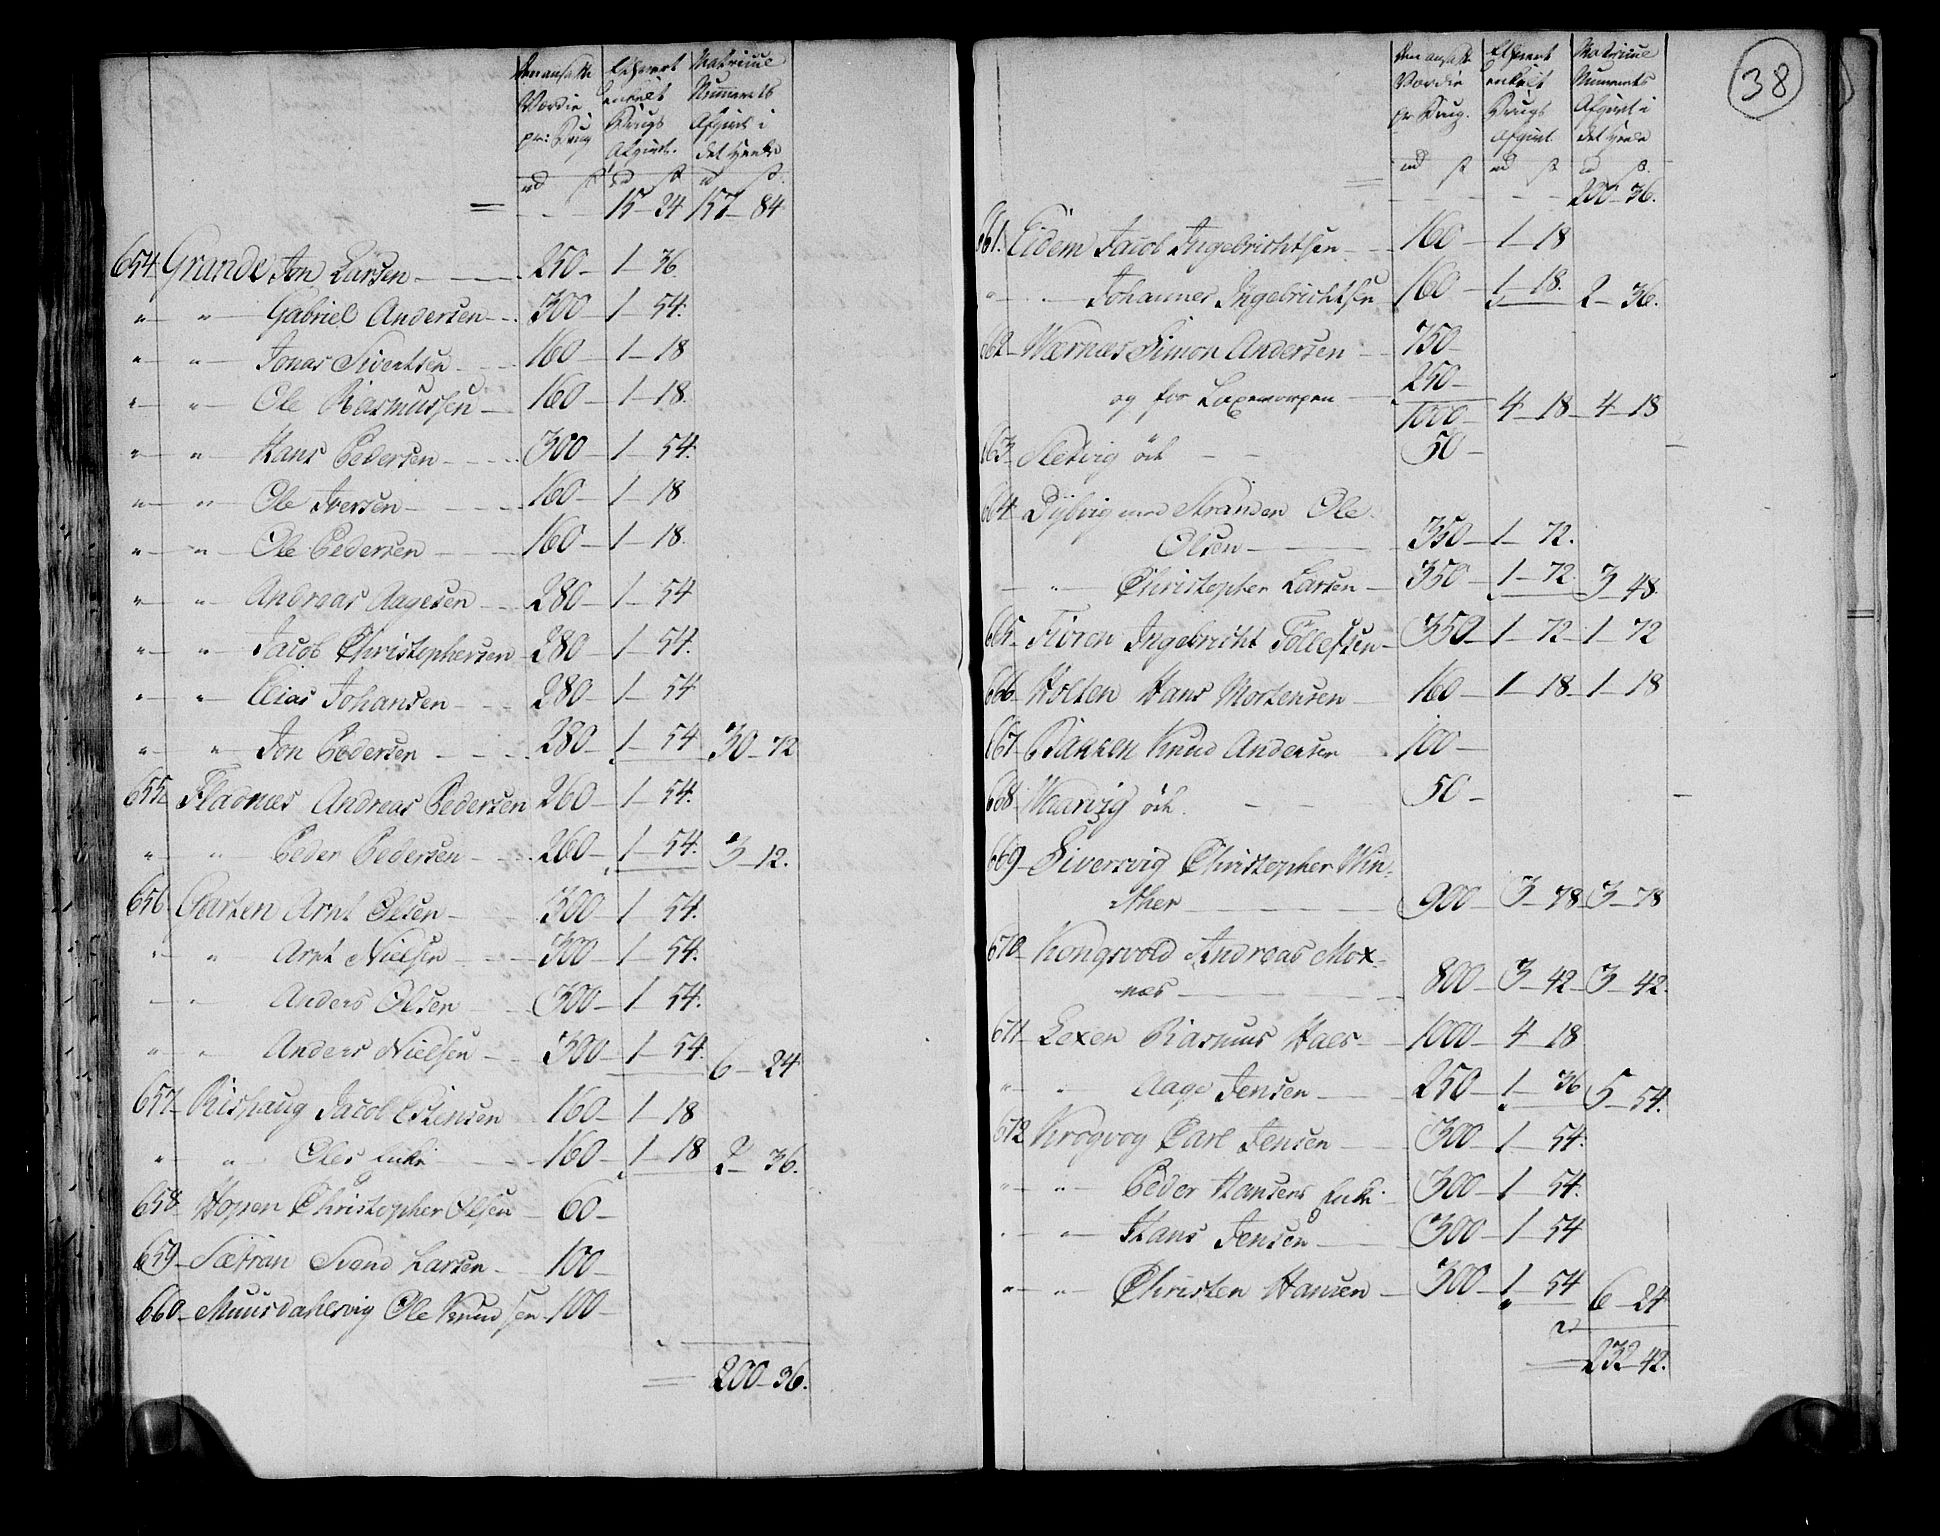 Den ansatte Værdie pr: Brug
Ethvert enkelt Brugs Afgivt.
Matricul Nummerets Afgivt i det heele
rd ß rd ß rd ß
= 15 - 24 157 - 84
654 Grande Jon Larsen 250 - 1 - 36
" " Gabriel Andersen 300 - 1 - 54.
" " Jonas Sivertsen 160 - 1 - 18
" " Ole Rasmussen 160 - 1 - 18.
" " Hans Pedersen 300 - 1 - 54.
" " Ole Iversen 160 - 1 - 18
" " Ole Pedersen 160 - 1 - 18.
" " Andreas Aagesen 280 - 1 - 54
" " Jacob Christophersen 280 - 1 - 54.
" " Elias Johansen 280 - 1 - 54
" " Jon Pedersen 280 - 1 - 54 30 - 72
655 Fladnæs Andreas Pedersen 260 - 1 - 54.
" " Peder Pedersen 260 - 1 - 54. 3 - 12.
656 Garten Arnt Olsen 300 - 1 - 54.
" " Arnt Nielsen 300 - 1 - 54.
" " Anders Olsen 300 - 1 - 54.
" " Anders Nielsen 300 - 1 - 54. 6 - 24
657 Rishaug Jacob Estensen 160 - 1 - 18
" " Oles Enke 160 - 1 - 18 2 - 36.
658 Hopen Christopher Olsen 60 -
659 Sætran Svend Larsen 100 -
660 Muusdahlsvig Ole Knudsen 100 -
= 200 - 36.
38
Den ansatte Værdie pr Brug.
Ethvert enkelt Brugs Afgivt.
Matricul Nummerets Afgivt i det heele
rd ß rd ß rd ß.
= 200 - 36.
661. Eidem Jacob Ingebrichtsen 160 - 1 - 18
" " Johannes Ingebrichtsen 160 - 1 - 18. 2 - 36.
662 Wærnæs Simon Andersen 750 -
og for 250 -
1000 - 4 - 18 - 4 - 18
663 Sletvig öde 50 -
664 Dybvig med Stranden Ole
Olsen 350 - 1 - 72.
" " Christopher Larsen 350 - 1 - 72. 3 - 48.
665 Fioren Ingebricht Tollefsen 350 - 1 - 72 - 1 - 72
666 Holten Hans Mortensen 160 - 1 - 18 - 1 - 18
667 Bakken Knud Andersen 100 -
668 Waarvig öde. 50 -
669 Sivertvig Christopher Win-
ther 900 - 3 - 78 - 3 - 78
670 Kongsvold Andreas Mox-
næs 800 - 3 - 42 - 3 - 42.
671 Lexen Rasmus Haes 1000 - 4 - 18
" " Aage Jensen 250 - 1 - 36 5 - 54.
672 Krogvog Carl Jensen 300 - 1 - 54.
" " Peder Hansens Enke 300 - 1 - 54.
" " Hans Jensen 300 - 1 - 54
" " Christen Hansen 300 - 1 - 54 6 - 24
= 232 - 42.